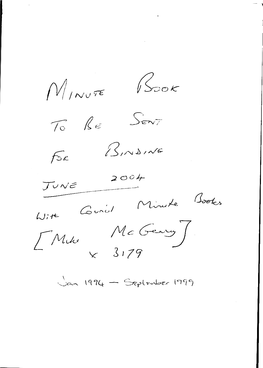 MINUTE BOOK
TO BE SENT
FOR BINDING
JUNE 2004
With Council Minute Books
[Mike McGeary]
x 3179
Jan 1994 — September 1999